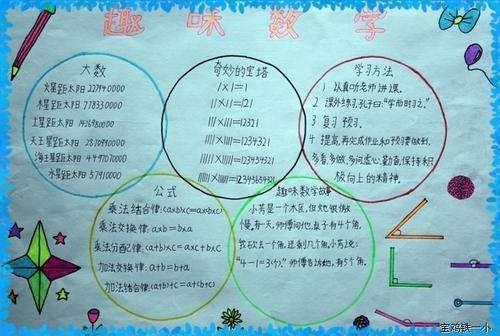 趣味数学
大数
火星距太阳 227940000
木星距太阳 778330000
土星距太阳 1429400000
天王星距太阳 2870990000
海王星距太阳 4497070000
水星距太阳 57910000
奇妙的宝塔
1×1=1
11×11=121
111×111=12321
1111×1111=1234321
11111×11111=123454321
111111×111111=12345654321
学习方法
1 认真听老师讲课。
2 课外练习,孔子曰:"学而时习之。"
3 复习 预习。
4 提高,再完成作业和预习要做到,
多看多做,多问虚心,勤奋,保持积
极向上的精神。
公式
乘法结合律:(a×b)×c=a×(b×c)
乘法交换律:a×b=b×a
乘法分配律:(a+b)×c=a×c+b×c
加法交换律:a+b=b+a
加法结合律:(a+b)+c=a+(b+c)
趣味数学故事
小芳是一个木匠,但她很傲
慢。有一天,师傅问他,桌子有4个角,
我砍去一个角,还剩几个角,小芳说:
"4-1=3个。"师傅告诉她,有5个角。
宝鸡铁一小